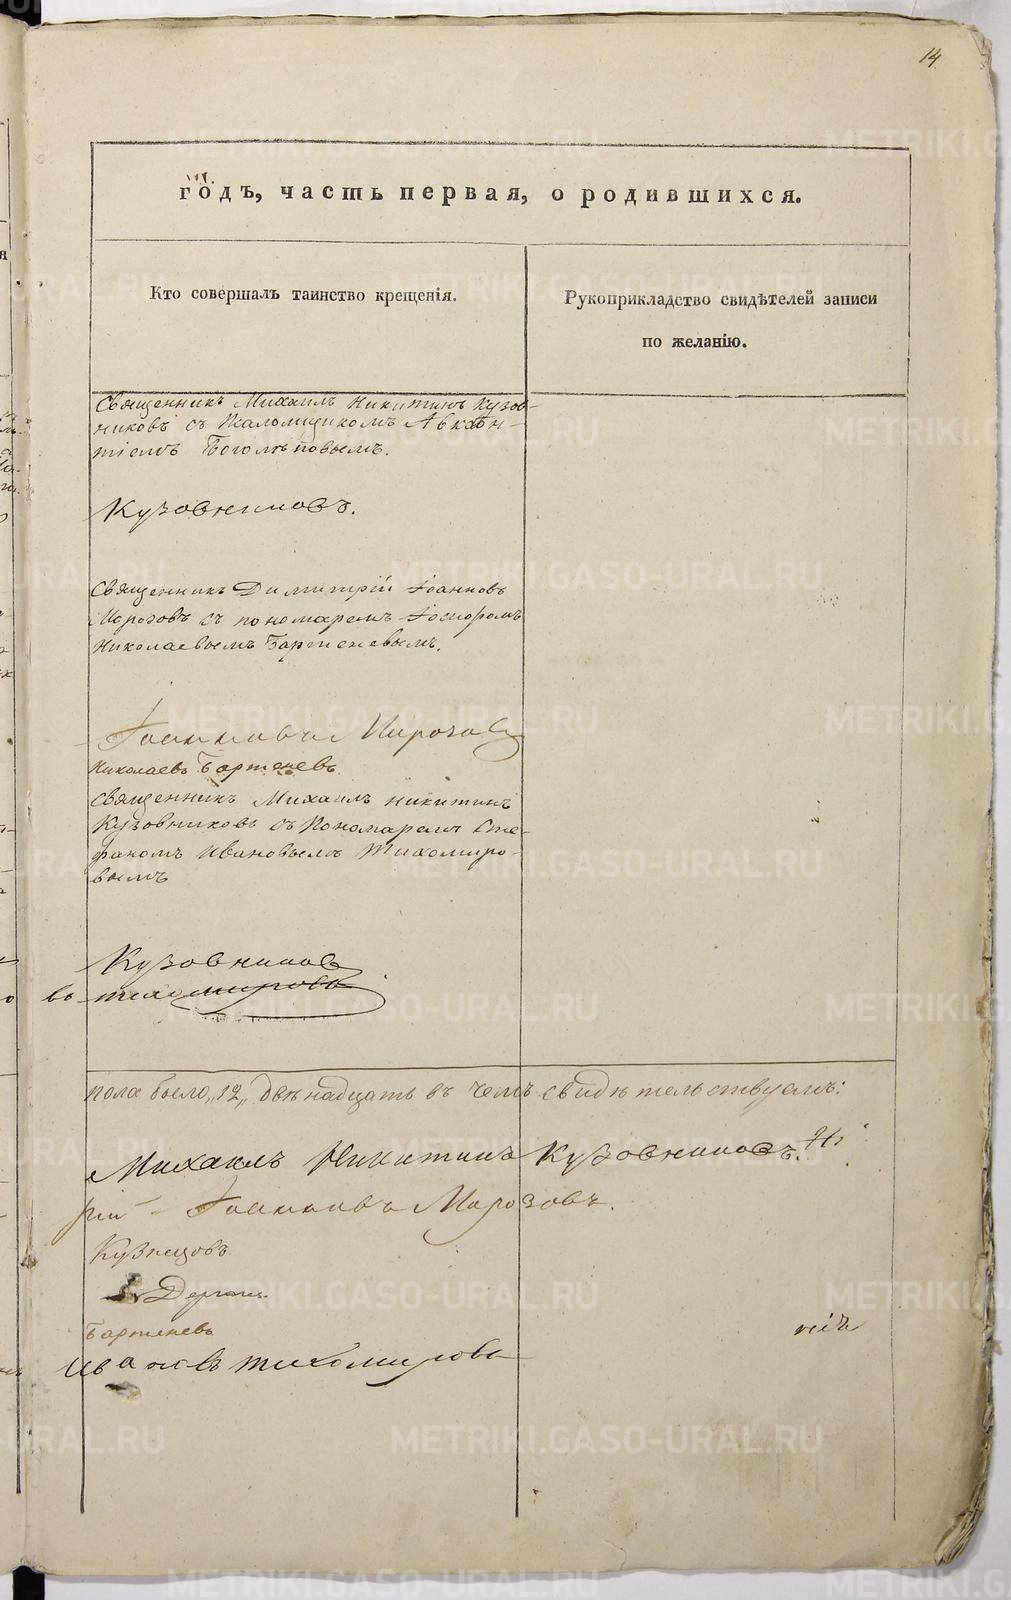 14
годъ, часть первая, о родившихся.
Кто совершалъ таинство крещенія.
Рукоприкладство свидѣтелей записи
по желанію.
Священникъ Михаилъ Никитинъ Кузов-
никовъ съ Псаломщикомъ
Боголѣповымъ.
Кузовниковъ.
Священникъ Димитрій Іоанновъ
Морозовъ съ пономаремъ
Николаевымъ Бартеневымъ.
Іоанновъ Морозовъ
Николаевъ Бартеневъ.
Священникъ Михаилъ Никитинъ
Кузовниковъ съ Пономаремъ Сте-
фаномъ Ивановымъ Тихомиро-
вымъ
Кузовниковъ
въ Тихомировъ
пола было „12„ двѣнадцать въ чемъ свидѣтельствуемъ:
Михаилъ Никитинъ Кузовниковъ.
рій Іоанновъ Морозовъ.
Кузнецовъ.
Бартеневъ
Ивановъ Тихомировъ
METRIKI.GASO-URAL.RU